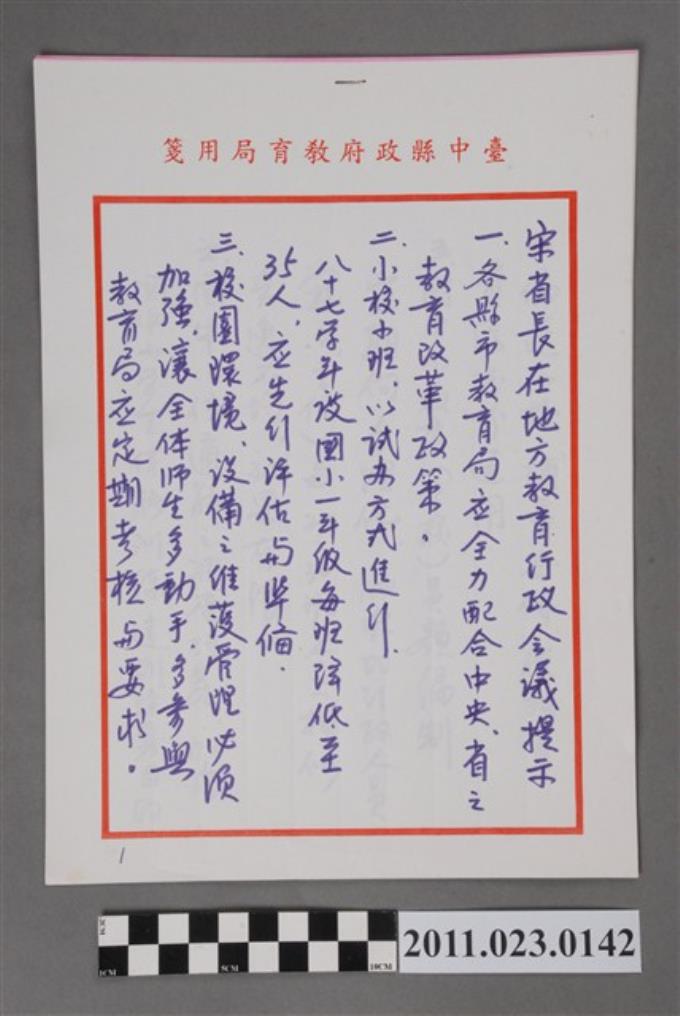 臺中縣政府教育局用箋
宋省長在地方教育行政会議提示
一、各縣市教育局应全力配合中央、省之
教育改革政策。
二、小校小班，以試办方式進行.
八十七学年设國小一年级每班降低至
35人，应先行评估与準備.
三、校園環境、设備之维護管理必须
加強，讓全体师生多動手，多参與
教育局应定期考核与要求。
1
1CM
5CM
10CM
2011.023.0142